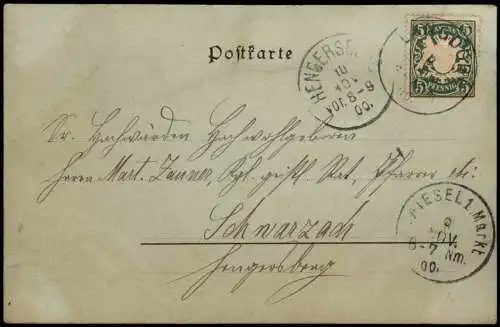 Postkarte
HENGERSB
10
NOV.
Vor. 8-9
00.
5 5
PFENNIG
5 5
Sr. Hochwürden Hochwohlgeboren
Herrn Mart. Zanner, Kgl. geistl. Rat, Pfarrer etc:
Schwarzach
Hengersberg
WIESEL 1. Markt
9
NOV.
6-7 Nm.
00.